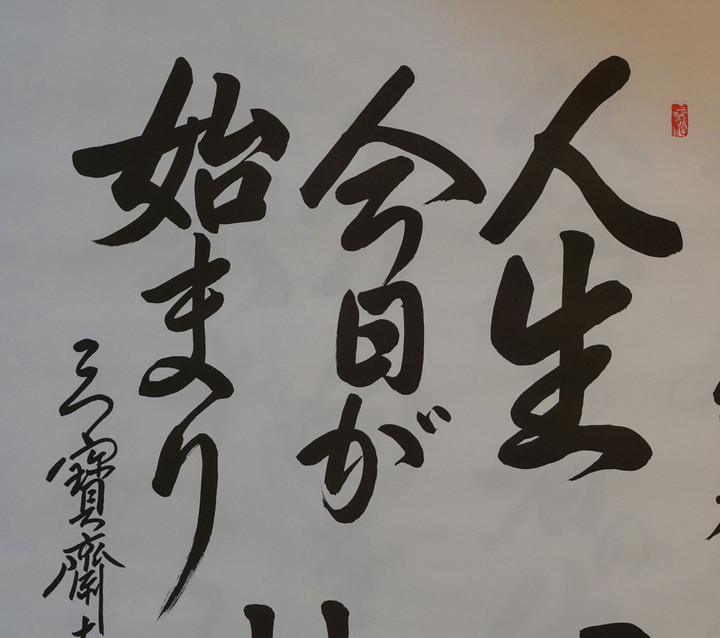 人生
今日が
始まり
三寳齋